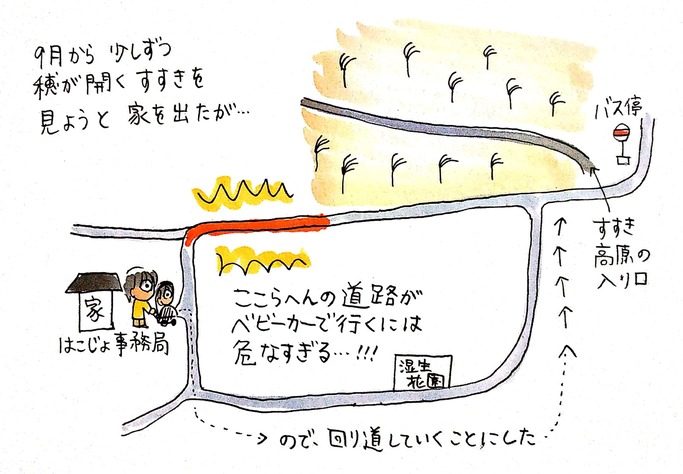 9月から 少しずつ
穂が開く すすきを
見ようと 家を出たが…
バス停
すすき
高原の
入り口
家
はこじょ事務局
ここらへんの道路が
ベビーカーで行くには
危なすぎる…!!!
湿生
花園
ので、回り道していくことにした